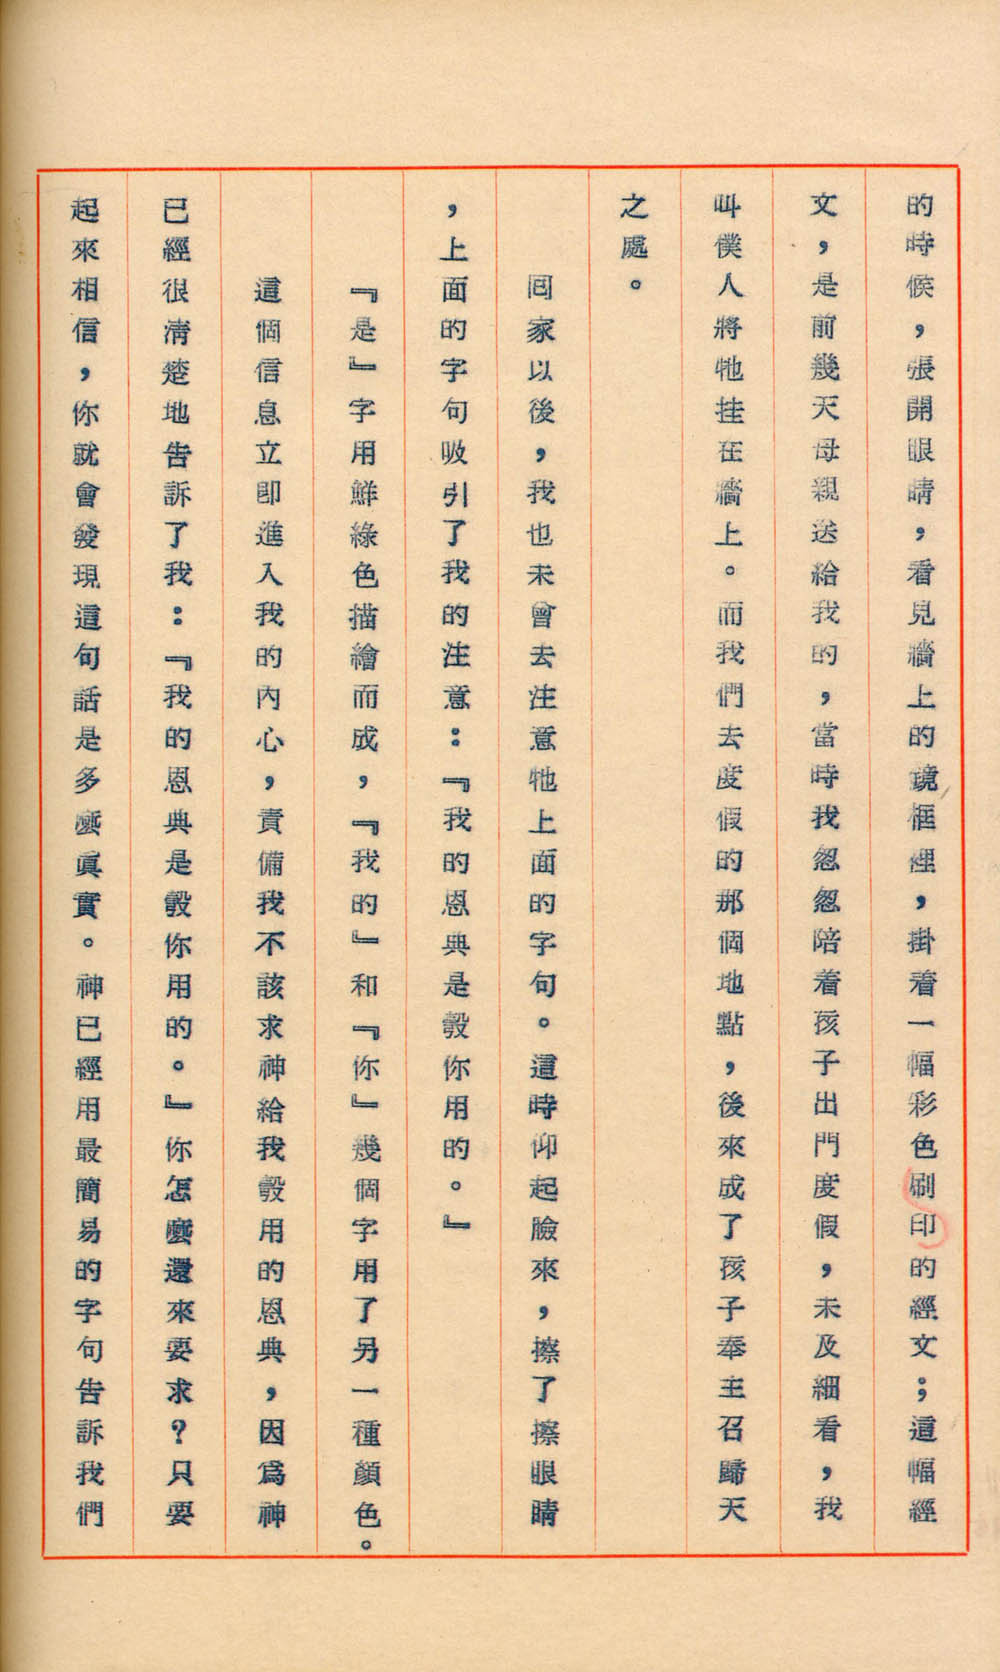 的時候，張開眼睛，看見牆上的鏡框裡，掛着一幅彩色刷印的經文；這幅經
文，是前幾天母親送給我的，當時我忽忽陪着孩子出門度假，未及細看，我
叫僕人將牠挂在牆上。而我們去度假的那個地點，後來成了孩子奉主召歸天
之處。
回家以後，我也未曾去注意牠上面的字句。這時仰起臉來，擦了擦眼睛
，上面的字句吸引了我的注意：『我的恩典是彀你用的。』
『是』字用鮮綠色描繪而成，『我的』和『你』幾個字用了另一種顏色。
這個信息立卽進入我的內心，責備我不該求神給我彀用的恩典，因爲神
已經很清楚地告訴了我：『我的恩典是彀你用的。』你怎麼還來要求？只要
起來相信，你就會發現這句話是多麼眞實。神已經用最簡易的字句告訴我們